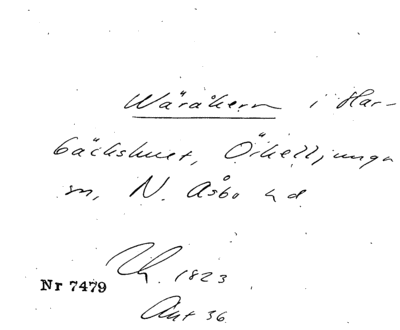 Wäråkern i Har-
bäckshult, Örkelljunga
sn, N. Åsbo hd
1823
Nr 7479
Akt 36